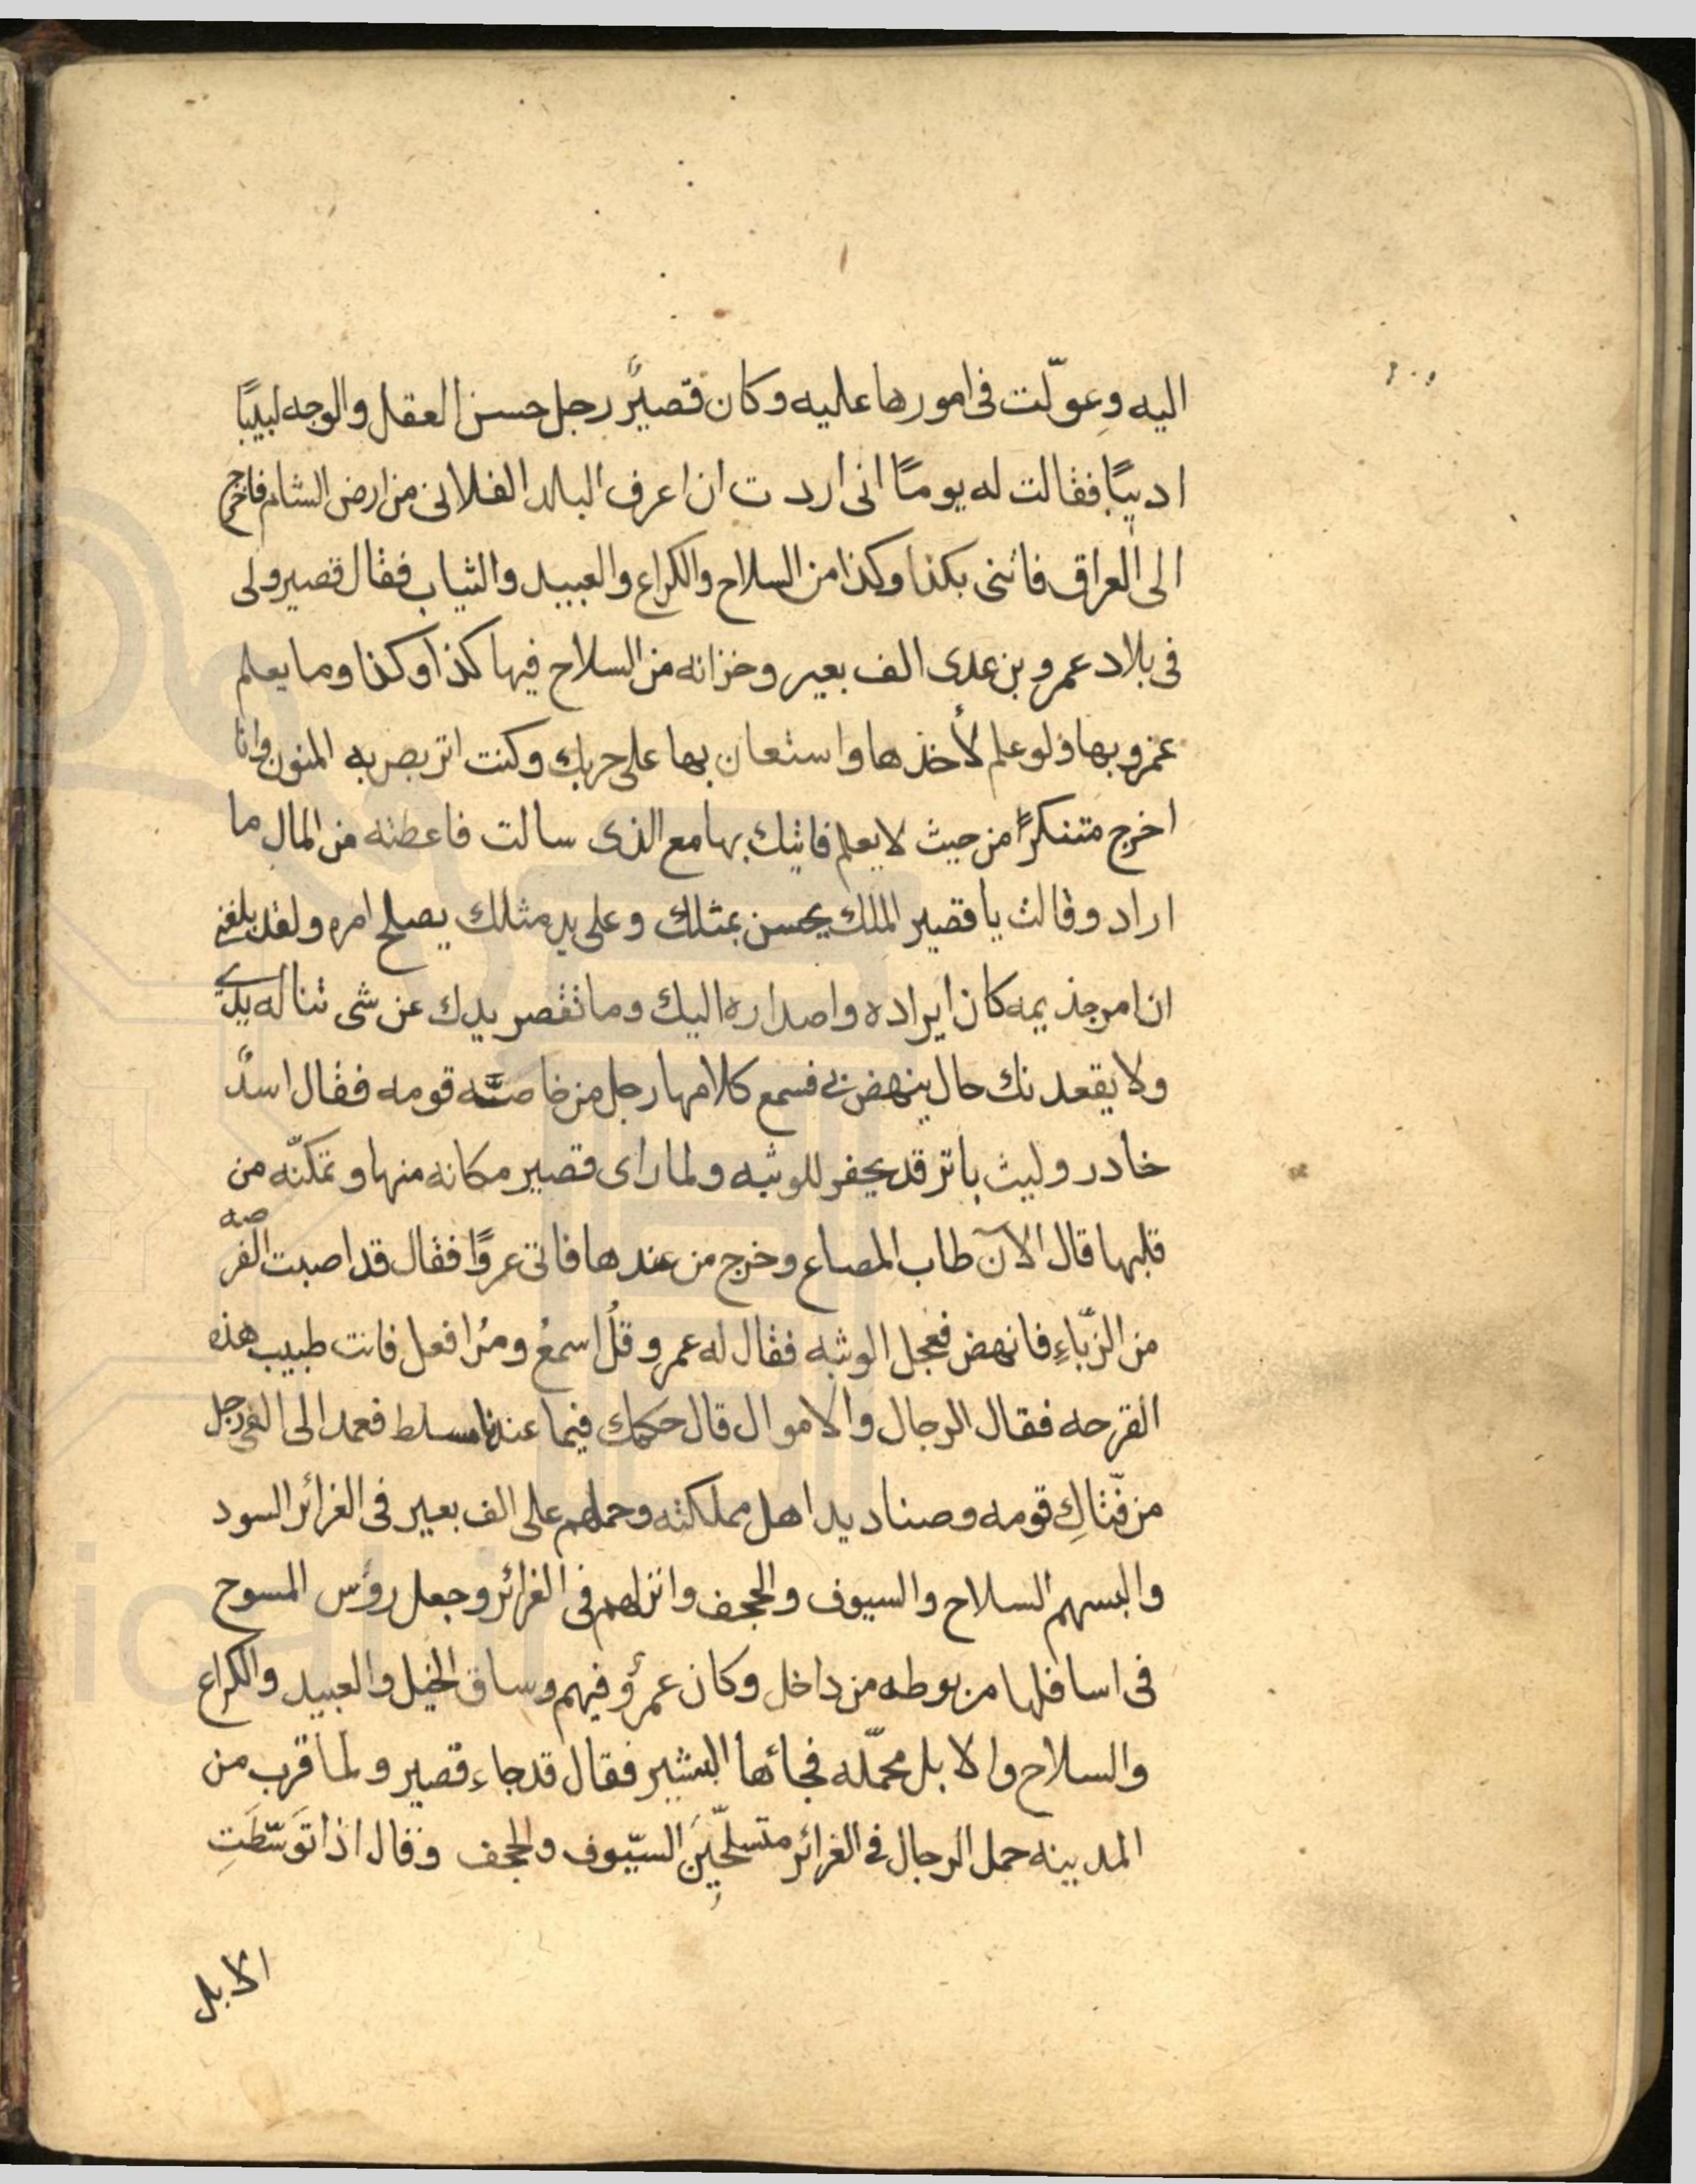 اليه وعوّلت فى امورها عليه وكان قصيرً رجل حسن العقل والوجه لبيبًا
اديبًا فقالت له يومًا انى اردت ان اعرف البلد الفلانى من ارض الشام فاخرج
الى العراق فاتنى بكذا وكذا من السلاح والكراع والعبيد والثياب فقال قصير ولى
فى بلاد عمرو بن عدى الف بعير وخزانه من السلاح فيها كذا وكذا وما يعلم
عمرو بها ولو علم لأخذها واستعان بها على حربك وكنت اتربص به المنون وانا
اخرج متنكرًا من حيث لا يعلم فاتيك بها مع الذى سالت فاعطته من المال ما
اراد وقالت يا قصير الملك يحسن بمثلك وعلى يد مثلك يصلح امره ولقد بلغنى
ان امر جذيمه كان ايراده واصداره اليك وما تقصر يدك عن شى تناله يدى
ولا يقعد نك حال ينهض بى فسمع كلامها رجل من خاصته قومه فقال اسدٌ
خادر وليث باتر قد يحفر للوثبه ولما راى قصير مكانه منها وتمكنّه من
قلبها قال الآن طاب المصاع وخرج من عندها فاتى عمروًا فقال قد اصبت الفرصه
من الزبّاءِ فانهض فعجل الوثبه فقال له عمرو قلُ اسمعُ ومُر افعل فانت طبيب هذه
القرحه فقال الرجال والاموال قال حكمك فيما عندنا مسلط فعمد الى الفى رجل
من فتّاكِ قومه وصناديد اهل مملكته وحملهم على الف بعير فى الغرائر السود
والبسهم السلاح والسيوف والحجف وانزلهم فى الغرائر وجعل رؤس المسوح
فى اسافلها مربوطه من داخل وكان عمرؤ فيهم وساق الخيل والعبيد والكراع
والسلاح والابل محمّله فجائها البشير فقال قد جاء قصير ولما قرب من
المدينه حمل الرجال فى الغرائر متسلّحِينَ السيّوف والحجف وقال اذا توَسّطَتِ
الابل